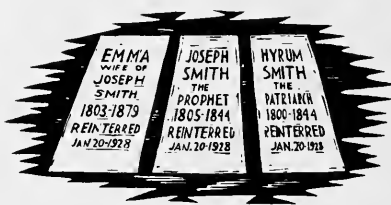 EMMA
WIFE OF
JOSEPH
SMITH
1803-1879
REINTERRED
JAN 20-1928
JOSEPH
SMITH
THE
PROPHET
1805-1844
REINTERRED
JAN. 20-1928
HYRUM
SMITH
THE
PATRIARCH
1800-1844
REINTERRED
JAN. 20-1928